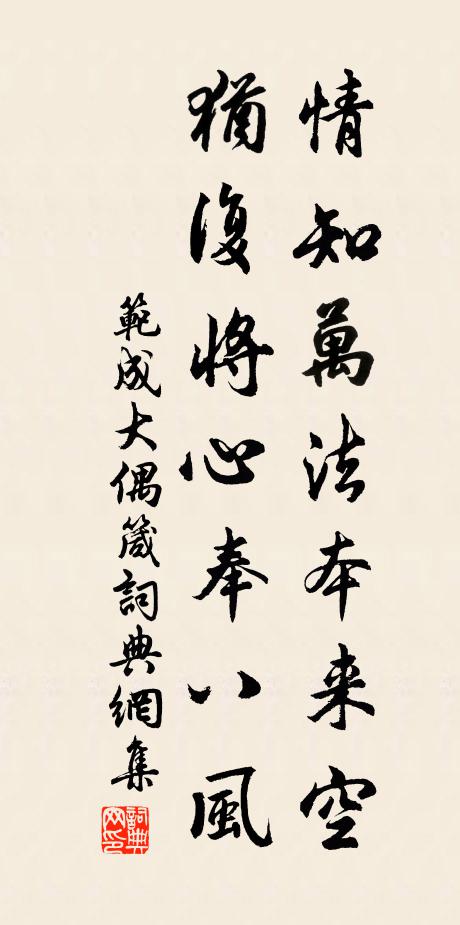 情知萬法本来空
猶復將心奉八風
範成大偶箴詞典網集
詞典网印